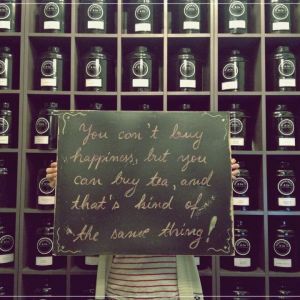 You can't buy
happiness, but you
can buy tea, and
that's kind of
the same thing!